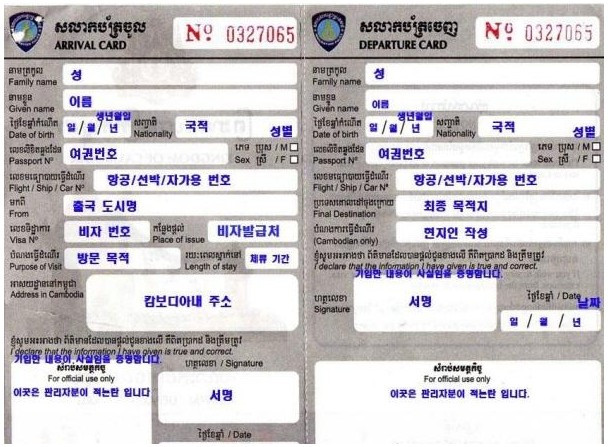 សលាកប័ត្រចូល
ARRIVAL CARD
Nº 0327065
នាមត្រកូល
Family name
성
នាមខ្លួន
Given name
이름
ថ្ងៃខែឆ្នាំកំណើត
Date of birth
생년월일
일 / 월 / 년
សញ្ជាតិ
Nationality
국적
성별
លេខលិខិតឆ្លងដែន
Passport Nº
여권번호
ភេទ ប្រុស / M
Sex ស្រី / F
លេខមធ្យោបាយធ្វើដំណើរ
Flight / Ship / Car Nº
항공/선박/자가용 번호
មកពី
From
출국 도시명
លេខទិដ្ឋាការ
Visa Nº
비자 번호
កន្លែងផ្តល់
Place of issue
비자발급처
បំណងធ្វើដំណើរ
Purpose of Visit
방문 목적
រយៈពេលស្នាក់នៅ
Length of stay
체류 기간
អាសយដ្ឋាននៅកម្ពុជា
Address in Cambodia
캄보디아내 주소
ខ្ញុំសូមអះអាងថា ព័ត៌មានដែលបានផ្តល់ជូនខាងលើ គឺពិតប្រាកដ និងត្រឹមត្រូវ
I declare that the information I have given is true and correct.
기입한 내용이 사실임을 증명합니다.
សំរាប់សមត្ថកិច្ច
For official use only
이곳은 관리자분이 적는란 입니다
ហត្ថលេខា / Signature
서명
ថ្ងៃខែឆ្នាំ / Date
សលាកប័ត្រចេញ
DEPARTURE CARD
Nº 0327065
នាមត្រកូល
Family name
성
នាមខ្លួន
Given name
이름
ថ្ងៃខែឆ្នាំកំណើត
Date of birth
생년월일
일 / 월 / 년
សញ្ជាតិ
Nationality
국적
성별
លេខលិខិតឆ្លងដែន
Passport Nº
여권번호
ភេទ ប្រុស / M
Sex ស្រី / F
លេខមធ្យោបាយធ្វើដំណើរ
Flight / Ship / Car Nº
항공/선박/자가용 번호
ប្រទេសគោលដៅចុងក្រោយ
Final Destination
최종 목적지
បំណងការធ្វើដំណើរ
(Cambodian only)
현지인 작성
ខ្ញុំសូមអះអាងថា ព័ត៌មានដែលបានផ្តល់ជូនខាងលើ គឺពិតប្រាកដ និងត្រឹមត្រូវ
I declare that the information I have given is true and correct.
기입한 내용이 사실임을 증명합니다.
ហត្ថលេខា
Signature
서명
ថ្ងៃខែឆ្នាំ / Date
날짜
일 / 월 / 년
សំរាប់សមត្ថកិច្ច
For official use only
이곳은 관리자분이 적는란 입니다.